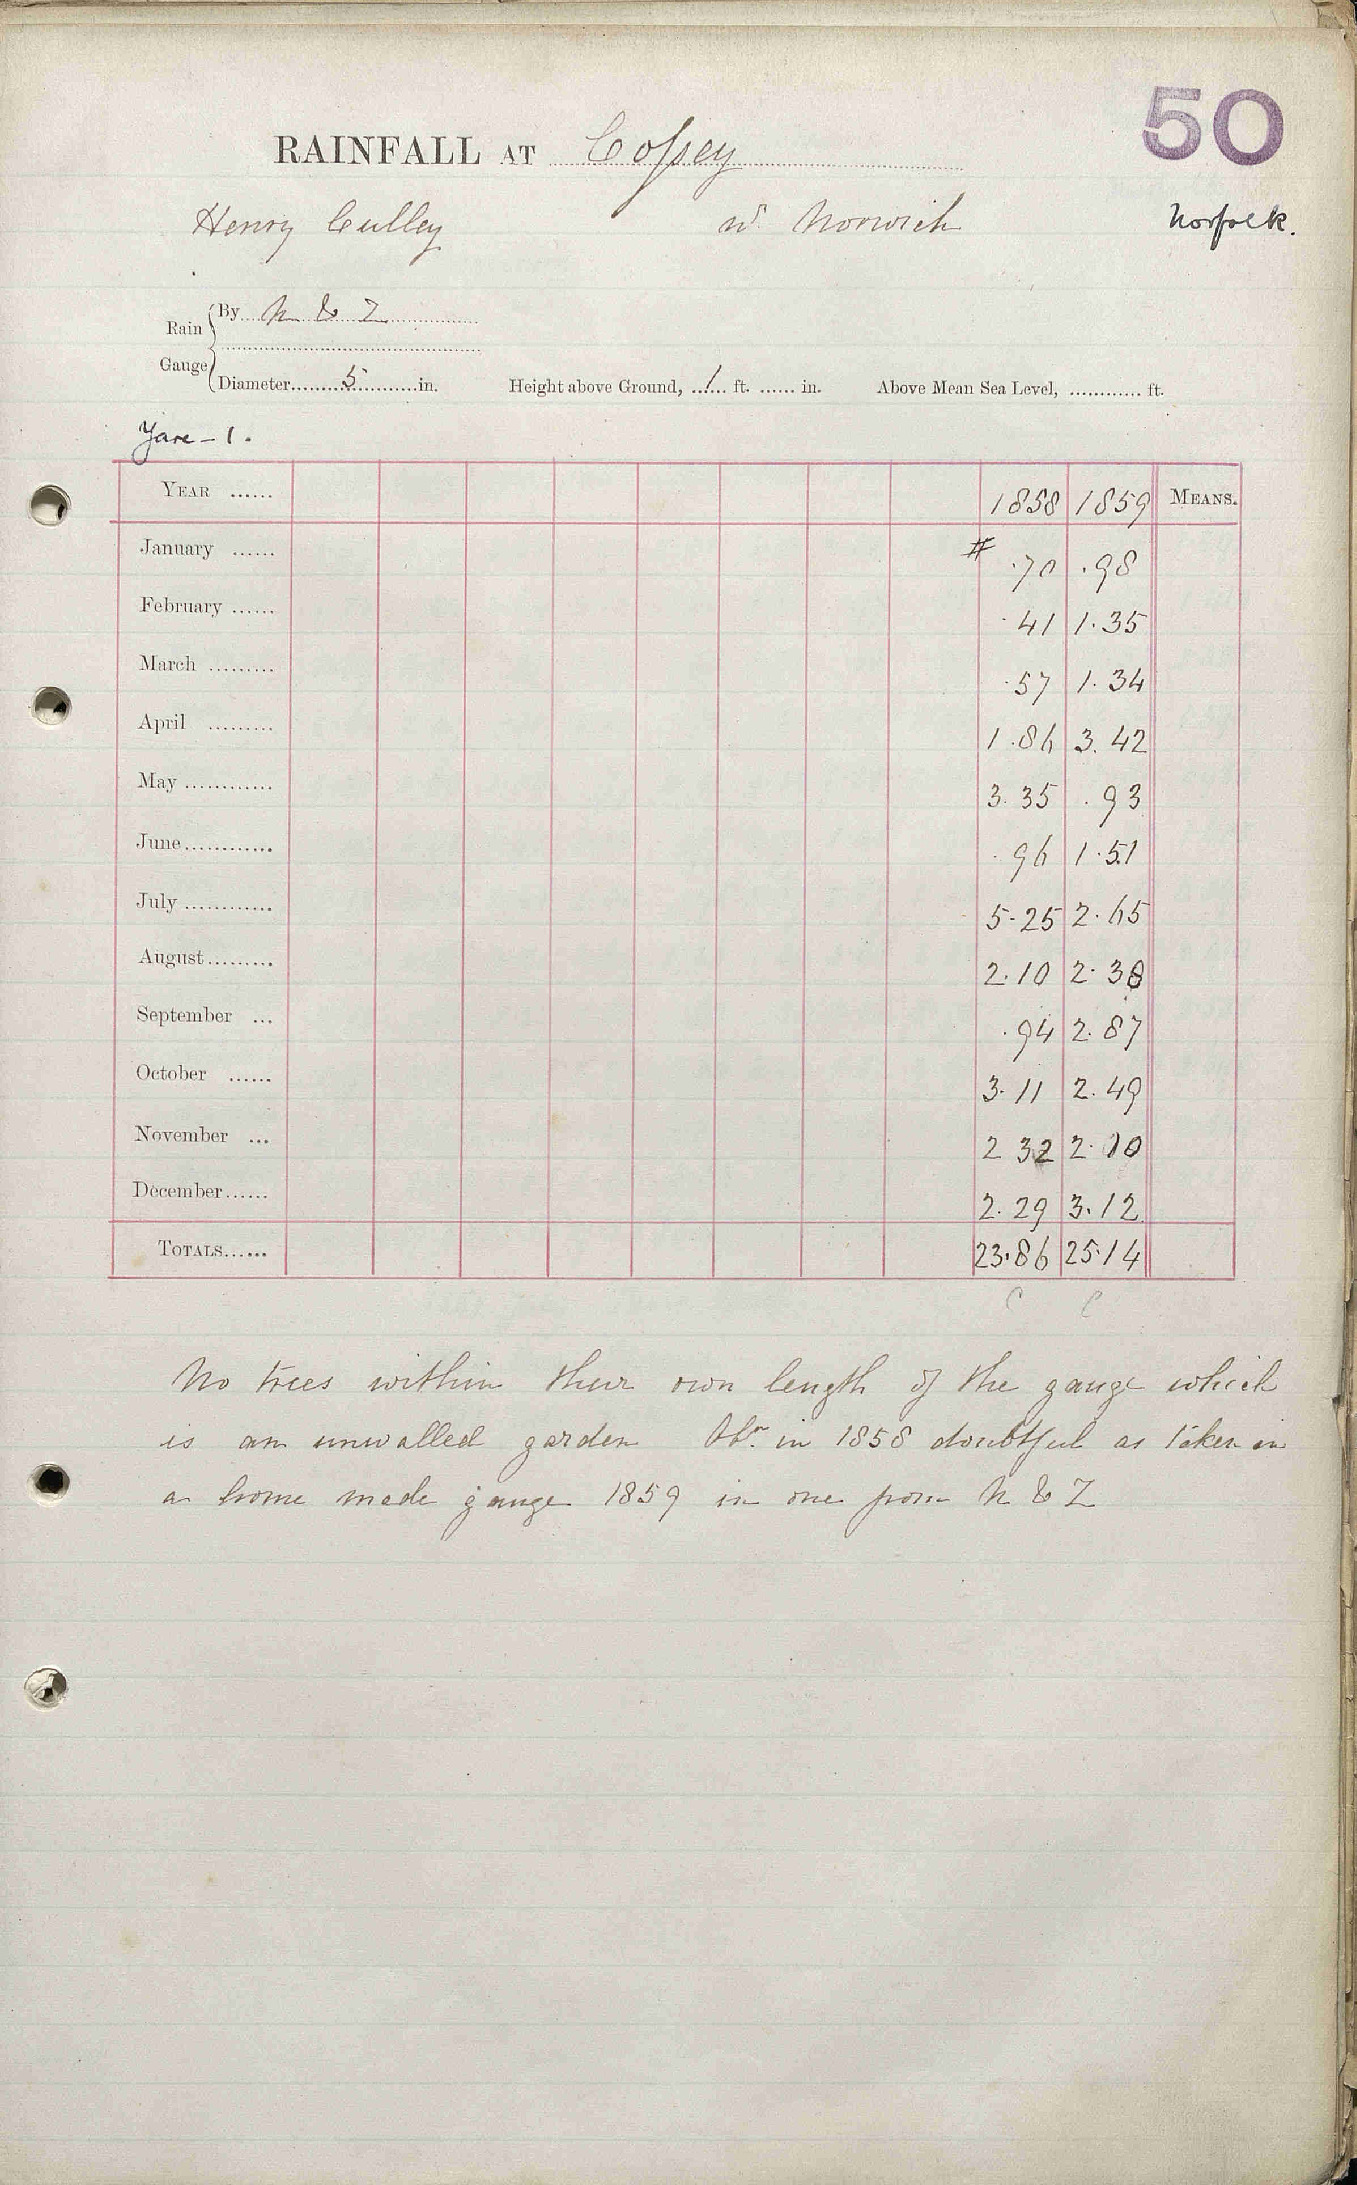 50
RAINFALL AT Cossey
Henry Culley nr Norwich Norfolk.
Rain Gauge
By N & Z
Diameter 5 in. Height above Ground, 1 ft. in. Above Mean Sea Level, ft.
Yare - 1.
YEAR 1858 1859 MEANS.
January # .70 .98
February .41 1.35
March .57 1.34
April 1.86 3.42
May 3.35 .93
June .96 1.51
July 5.25 2.65
August 2.10 2.38
September .94 2.87
October 3.11 2.49
November 2 32 2.10
December 2.29 3.12
TOTALS 23.86 25.14
C C
No trees within their own length of the gauge which
is an unwalled garden Obsn. in 1858 doubtful as taken in
a home made gauge 1859 in one from N & Z